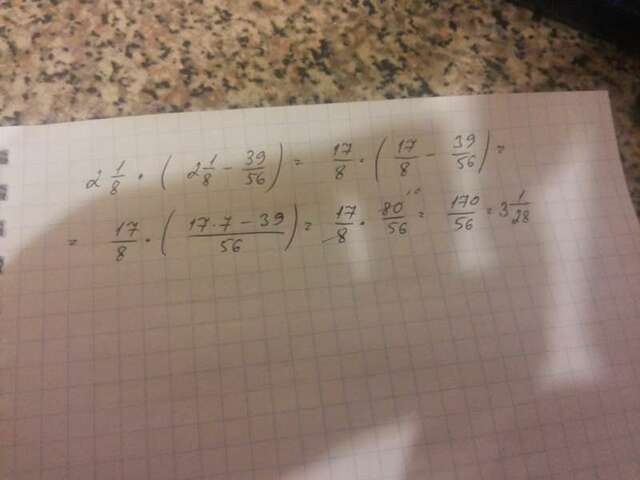 2 1/8 · ( 2 1/8 - 39/56 ) = 17/8 · ( 17/8 - 39/56 ) =
= 17/8 · ( 17·7-39/56 ) = 17/8 · 80/56 10 = 170/56 = 3 1/28